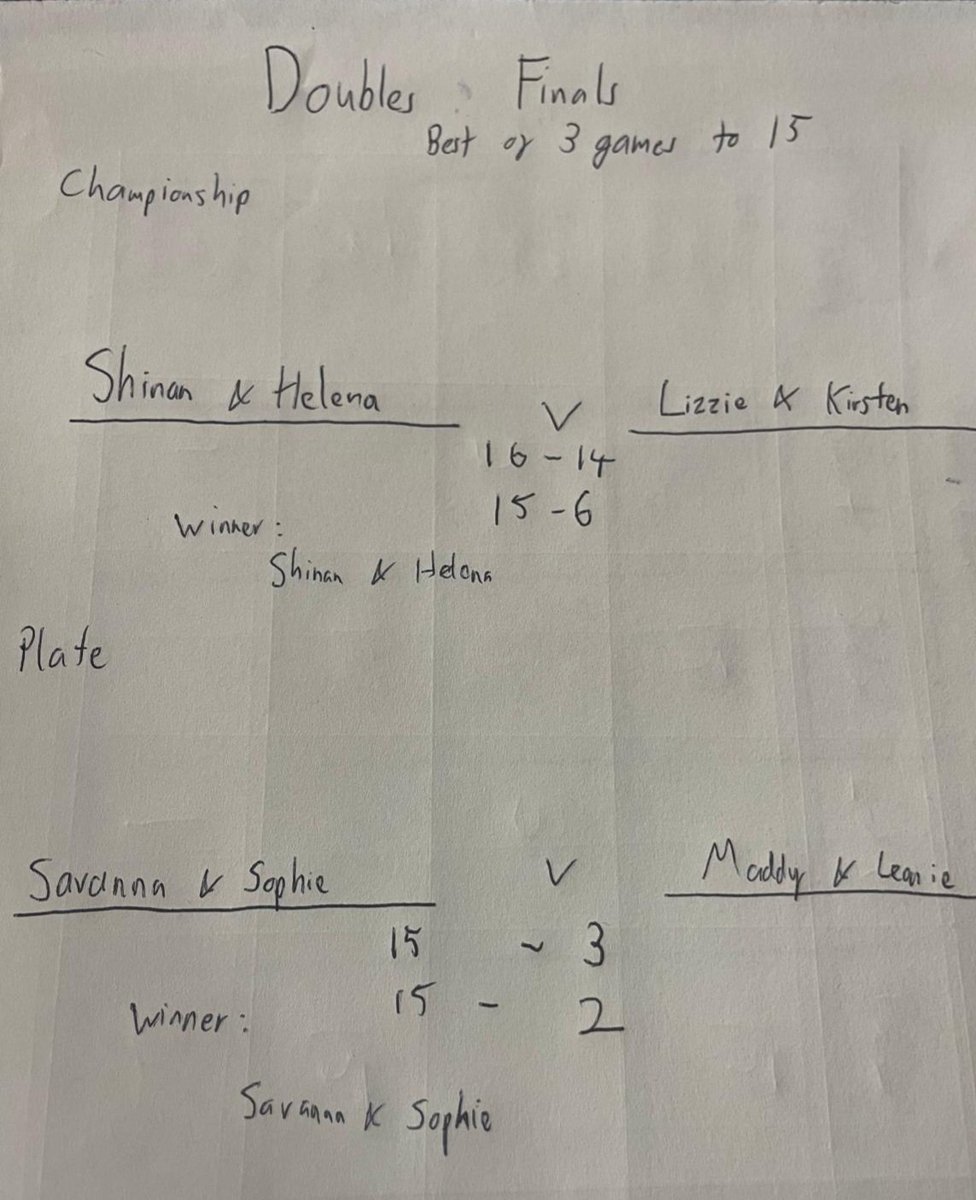 Doubles Finals
Best of 3 games to 15
Championship
Shinan & Helena V Lizzie & Kirsten
16-14
15-6
Winner:
Shinan & Helena
Plate
Savanna & Sophie V Maddy & Leanie
15 - 3
15 - 2
Winner:
Savanna & Sophie